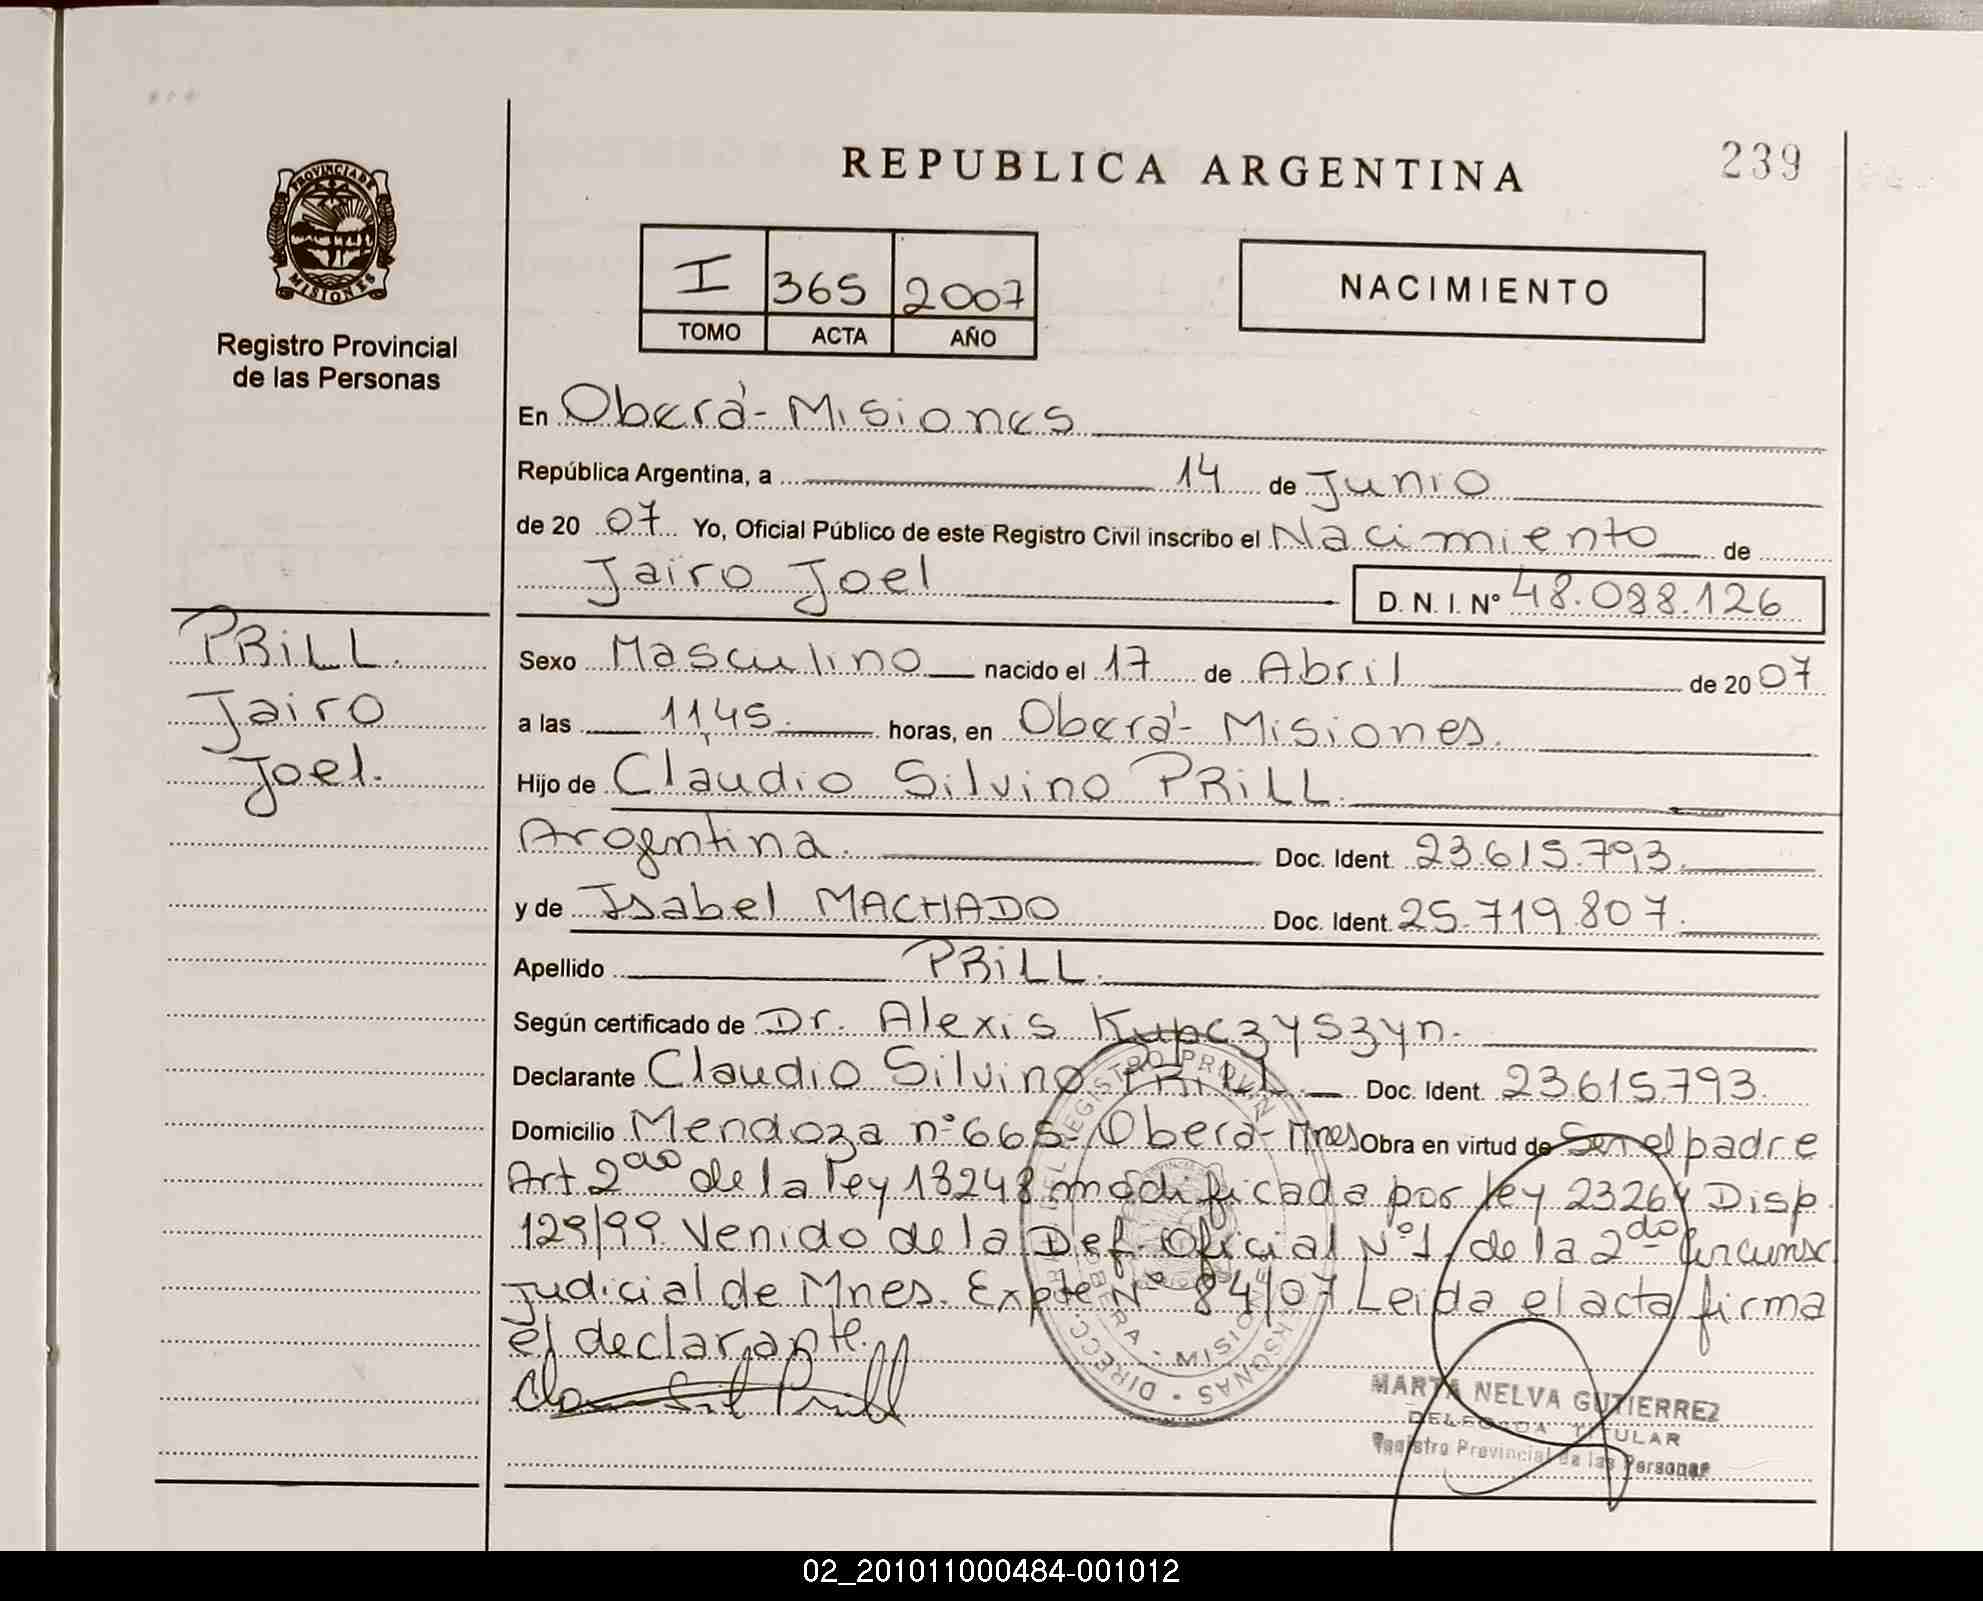 REPUBLICA ARGENTINA
239
PROVINCIA DE
MISIONES
Registro Provincial
de las Personas
I 365 2007
TOMO ACTA AÑO
NACIMIENTO
En Oberá - Misiones
República Argentina, a 14 de Junio
de 20 07 Yo, Oficial Público de este Registro Civil inscribo el Nacimiento de
Jairo Joel
D. N. I. Nº 48.088.126
PRiLL.
Jairo
Joel.
Sexo Masculino nacido el 17 de Abril de 20 07
a las 11,45. horas, en Oberá - Misiones.
Hijo de Claudio Silvino PRiLL.
Argentina. Doc. Ident. 23.615.793.
y de Isabel MACHADO Doc. Ident. 25.719.807.
Apellido PRiLL.
Según certificado de Dr. Alexis Kupczyszyn.
Declarante Claudio Silvino PRiLL Doc. Ident. 23.615.793.
Domicilio Mendoza nº 665 - Oberá - Mnes Obra en virtud de Ser el padre
Art. 2do de la ley 18248 modificada por ley 23264 Disp.
129/99. Venido de la Def. Oficial Nº 1 de la 2do Circunsc
Judicial de Mnes. Expte Nº 84/07. Leida el acta firma
el declarante.
MARTA NELVA GUTIERREZ
DELEGADA TITULAR
Registro Provincial de las Personas
02_201011000484-001012